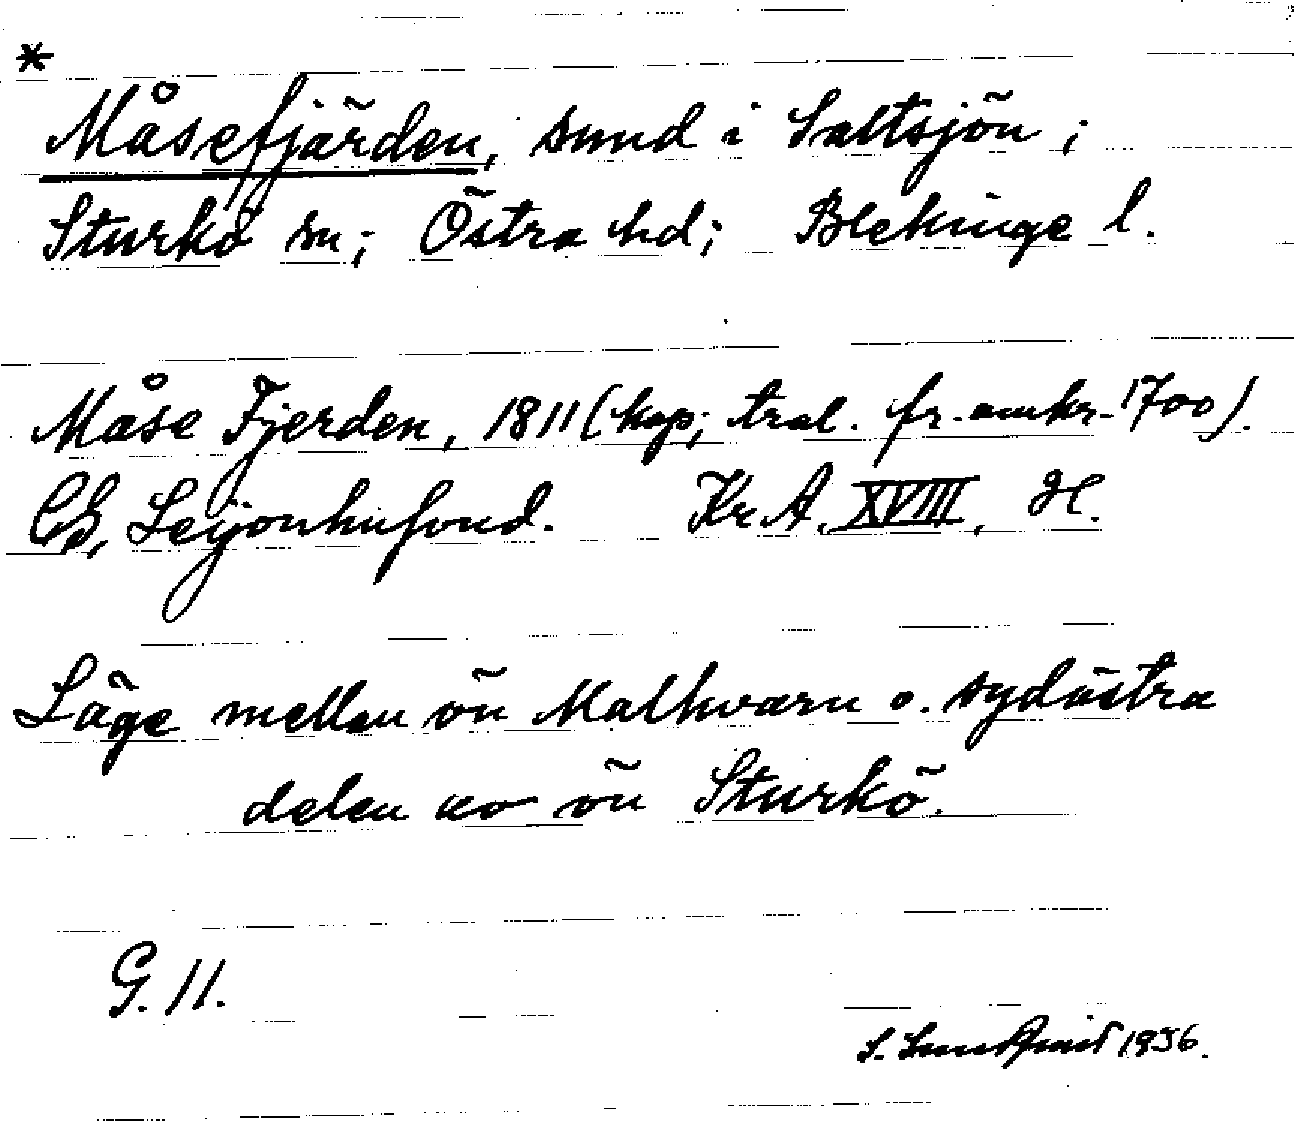 *
Måsefjärden, sund i Saltsjön;
Sturkö sn; Östra hd; Blekinge l.
Måse Fjerden, 1811 (kop; tral. fr. omkr. 1700).
CG, Leijonhufvud. Kr. A. XVIII, H.
Läge mellan ön Malkvarn o. sydöstra
delen av ön Sturkö.
G. 11.
S. 1956.